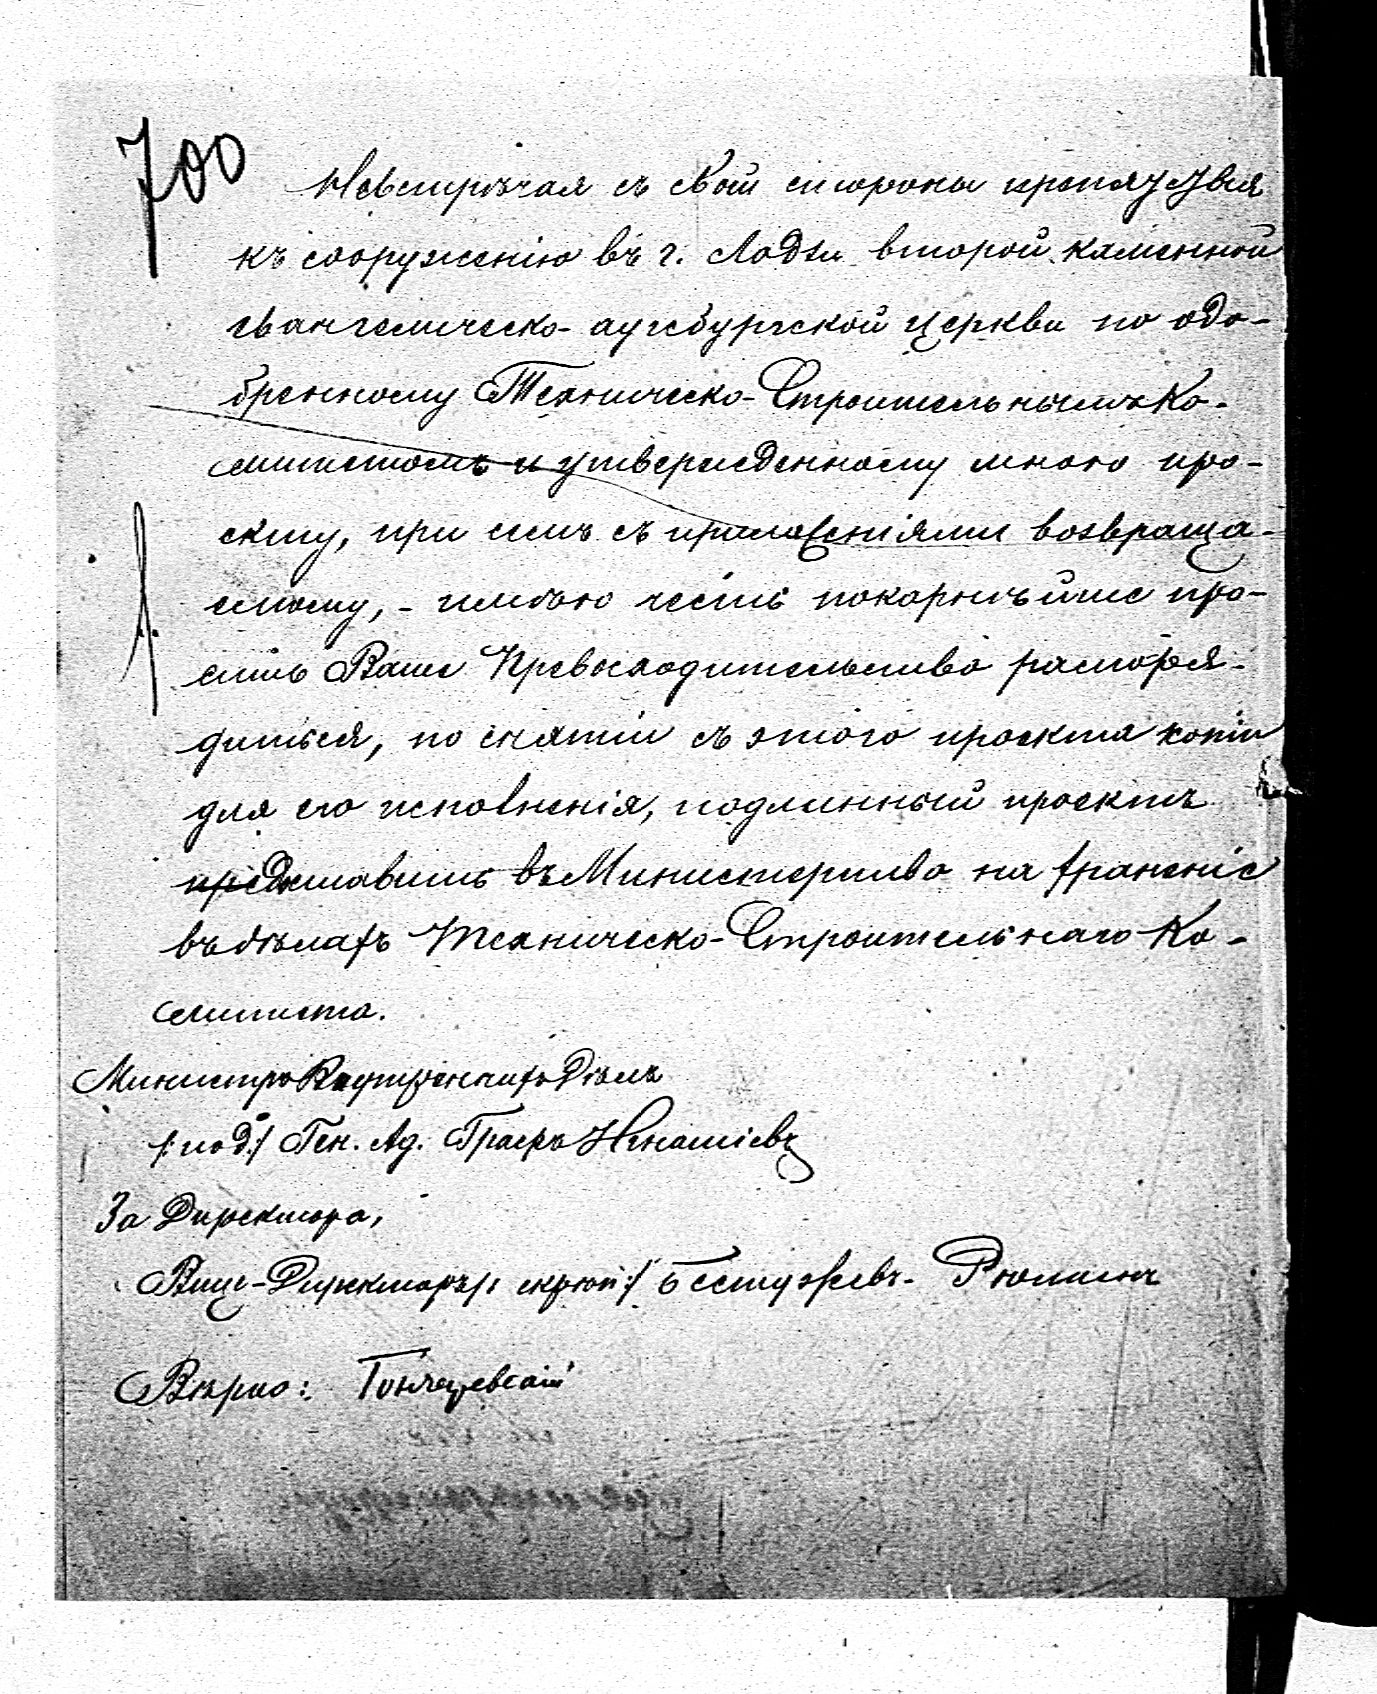 700
Невстрѣчая съ своей стороны препятствія
къ сооруженію въ г. Лодзи второй каменной
евангелическо-аугсбургской церкви по одо-
бренному Техническо-Строительнымъ Ко-
митетомъ и утвержденному мною про-
екту, при семъ съ приложеніями возвраща-
емому, - имѣю честь покорнѣйше про-
сить Ваше Превосходительство распоря-
диться, по снятіи съ этого проекта копіи
для его исполненія, подлинный проектъ
представить въ Министерство на храненіе
въ дѣлахъ Техническо-Строительнаго Ко-
митета.
Министръ Внутреннихъ Дѣлъ
/: под:/ Ген. Ад. Графъ Игнатіевъ
За Директора,
Вице-Директоръ /: скрѣп:/ Бестужевъ-Рюминъ
Вѣрно: